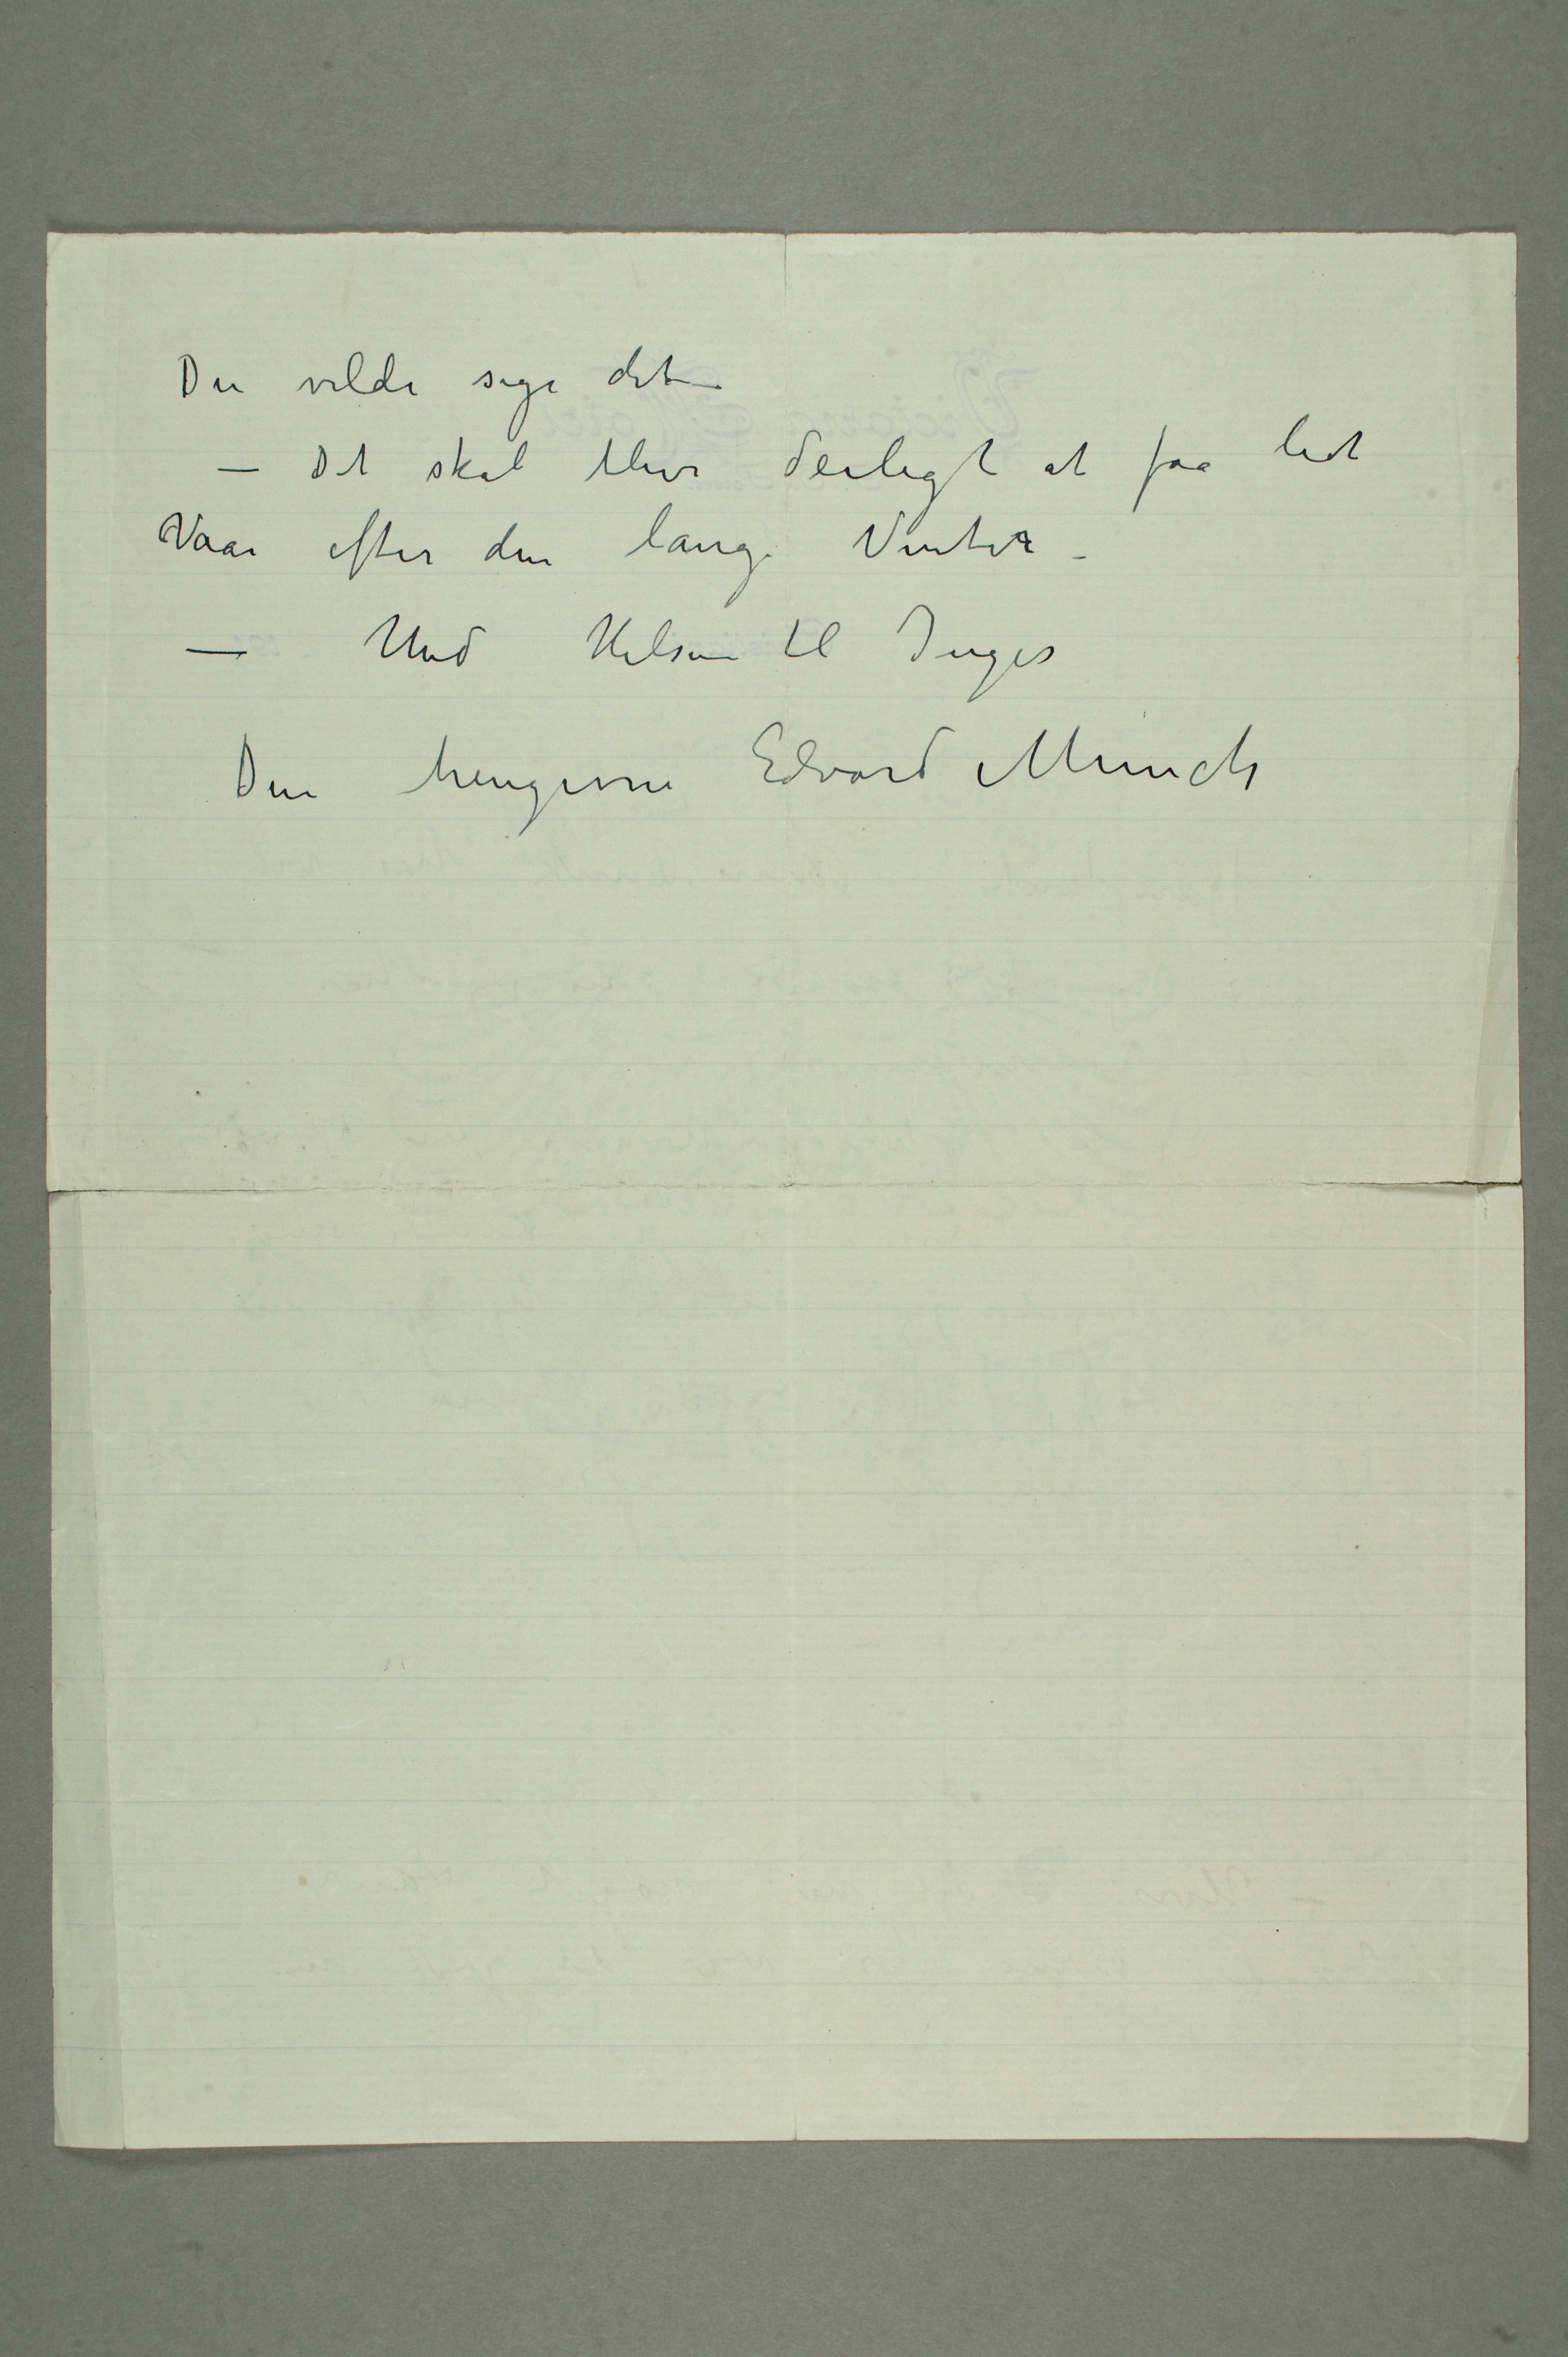 Du vilde sige det –
– Det skal blive deiligt at faa lidt
Vaar efter den lange Vinter –
– Med Hilsen til Inger
Din hengivne Edvard Munch